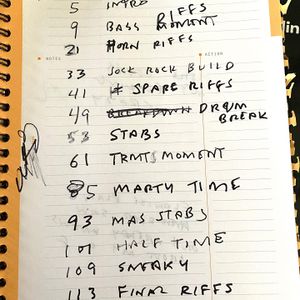 5 INTRO RIFFS
9 BASS MOMENT
21 HORN RIFFS
NOTES ACTION
33 JOCK ROCK BUILD
41 # SPARE RIFFS
49 BREAKDOWN DRUM BREAK
53 STABS
61 TRMTS MOMENT
85 MARTY TIME
93 MAS STABS
101 HALF TIME
109 SNEAKY
113 FINAL RIFFS